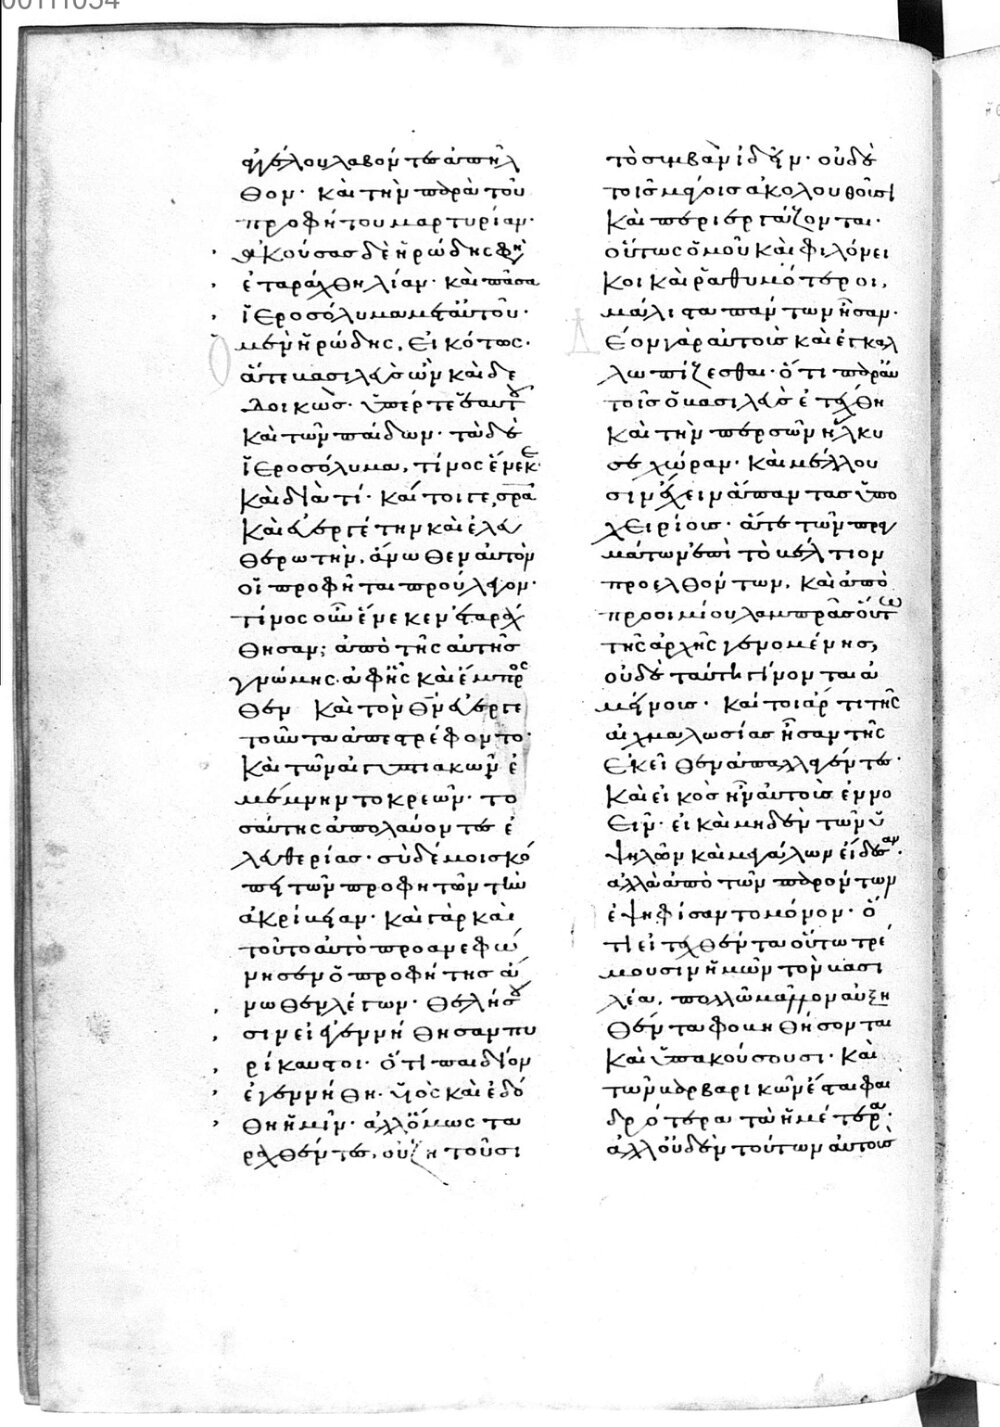 00111034
αγγέλου λαβόντες ἀπῆλ
θον· καὶ τὴν παρὰ τοῦ
προφήτου μαρτυρίαν·
ἀκούσας δὲ ἡρώδης φη
ἐταράχθη λίαν· καὶ πᾶσα
ἱεροσόλυμα μετ' αὐτοῦ·
Ὁ μὲν ἡρώδης, εἰκότως·
ἅτε βασιλεὺς ὢν καὶ δε
δοικὼς· ὑπέρ τε ἑαυτοῦ
καὶ τῶν παίδων· τὰ δὲ
ἱεροσόλυμα, τίνος ἕνεκεν·
καὶ διὰ τί· καί τοιγε, σρα
καὶ εὐεργέτην καὶ ἐλευ
θερωτὴν, ἄνωθεν αὐτὸν
οἱ προφῆται προύλεγον·
τίνος οὖν ἕνεκεν ἐταράχ
θησαν; ἀπὸ τῆς αὐτῆς
γνώμης ἀφ' ἧς καὶ ἔμπρος
θεν καὶ τὸν θν εὐεργε
τοῦντα ἀπεστρέφοντο·
καὶ τῶν αἰγυπτιακῶν ἐ
μέμνηντο κρεῶν· το
σαύτης ἀπολαύοντες ἐ
λευθερίας· σὺ δέ μοι σκό
πει τῶν προφητῶν τὴν
ἀκρίβειαν· καὶ γὰρ καὶ
τοῦτο αὐτὸ προανεφώ
νησεν ὁ προφήτης ἄ
νωθεν λέγων· θελήσου
σιν εἰ ἐγεννήθησαν πυ
ρίκαυστοι· ὅτι παιδίον
ἐγεννήθη· υἱὸς καὶ ἐδό
θη ἡμῖν· ἀλλ' ὅμως τα
ραχθέντες, οὐ ζητοῦσι
τὸ συμβὰν ἰδεῖν· οὐδὲ
τοῖς μάγοις ἀκολουθοῦσι
καὶ περιεργάζονται·
οὕτως ὁμοῦ καὶ φιλόνει
κοι καὶ ῥαθυμότεροι,
μάλιστα πάντων ἦσαν·
Δέον γὰρ αὐτοῖς καὶ ἐγκαλ
λωπίζεσθαι· ὅτι παρ' αὐ
τοῖς ὁ βασιλεὺς ἐτέχθη
καὶ τὴν περσῶν εἵλκυ
σε χώραν· καὶ μέλλου
σιν ἔχειν ἅπαντας ὑπο
χειρίους· ἅτε τῶν πραγ
μάτων ἐπὶ τὸ βέλτιον
προελθόντων, καὶ ἀπὸ
προοιμίου λαμπρᾶς οὕτω
τῆς ἀρχῆς γενομένης,
οὐδὲ ταύτη γίνονται ἀ
μείνους· καί τοι ἄρτι τῆς
αἰχμαλωσίας ἦσαν τῆς
ἐκεῖθεν ἀπαλλαγέντες·
καὶ εἰκὸς ἦν αὐτοὺς ἐννο
εῖν· εἰ καὶ μηδὲν τῶν ὑ
ψηλῶν καὶ μεγάλων εἴδεσαν·
ἀλλὰ ἀπὸ τῶν παρόντων
ἐψηφίσαντο μόνον· ὅ
τι εἰ τεχθέντα οὕτω τρέ
μουσιν ἡμῶν τὸν βασι
λέα, πολλῶ μᾶλλον αὐξη
θέντα φοβηθήσονται
καὶ ὑπακούσουσι· καὶ
τῶν βαρβαρικῶν ἔσται φαι
δρότερα τὰ ἡμέτερα·
ἀλλ' οὐδὲν τούτων αὐτοὺς